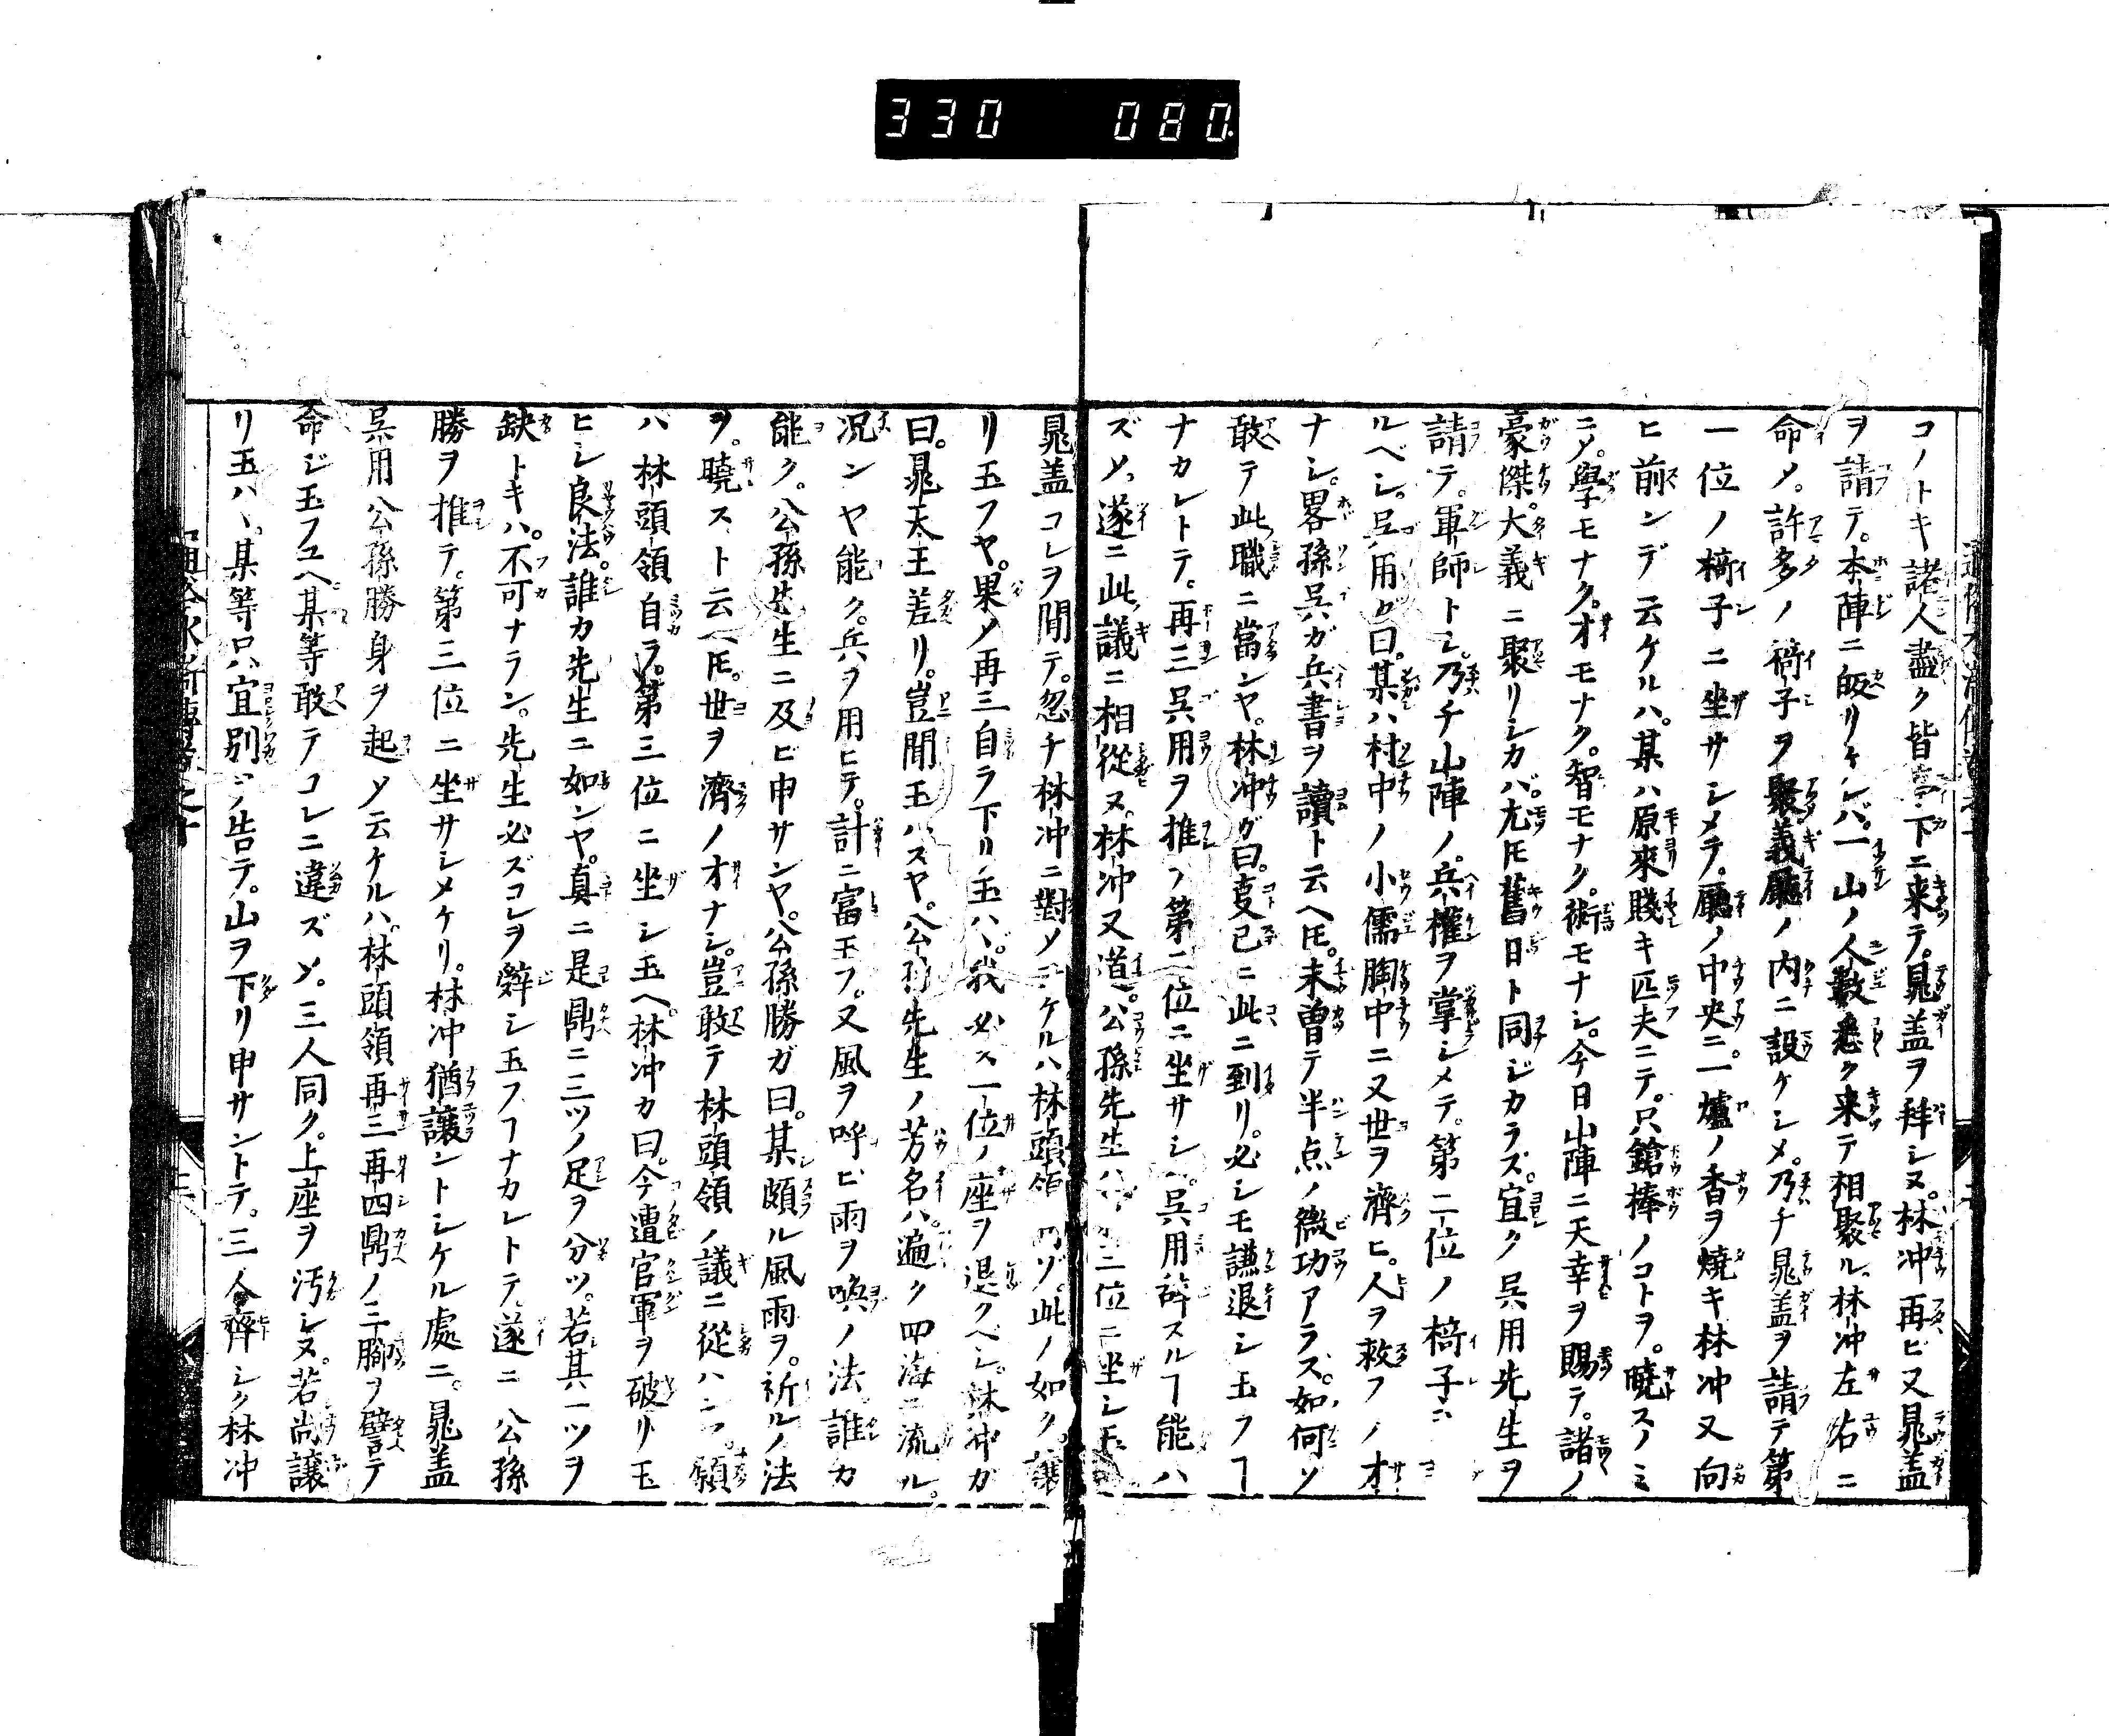 330 080
コノトキ諸人盡ク皆亭下ニ来テ。晁盖ヲ拜シヌ。林冲再ビ又晁盖
ヲ請テ。本陣ニ皈リケレバ。一山ノ人數悉ク来テ相聚ル。林冲左右ニ
命〆。許多ノ椅子ヲ聚義廳ノ内ニ設ケシメ。乃チ晁盖ヲ請テ第
一位ノ椅子ニ坐サシメテ。廳ノ中央ニ。一爐ノ香ヲ燒キ林冲又向
ヒ前ンデ云ケルハ。某ハ原來賤キ匹夫ニテ。只鎗棒ノコトヲ。曉スノミ
ニ〆。學モナク。才モナク。智モナク。術モナシ。今日山陣ニ天幸ヲ賜テ。諸ノ
豪傑。大義ニ聚リシカバ。尤𪜈舊日ト同ジカラズ。宜ク呉用先生ヲ
請テ。軍師トシ。乃チ山陣ノ。兵權ヲ掌シメテ。第二位ノ椅子ニ
ルベシ。呉用ガ曰。某ハ村中ノ小儒胸中ニ又世ヲ濟ヒ。人ヲ救フノ才
ナシ。畧孫呉ガ兵書ヲ讀ト云ヘ𪜈。未曽テ半点ノ微功アラズ。如何ソ
敢テ此職ニ當ンヤ。林冲ガ曰。㕝已ニ此ニ到リ。必シモ謙退シ玉フヿ
ナカレトテ。再三呉用ヲ推〆第二位ニ坐サシム。呉用辞スルヿ能ハ
ズ〆。遂ニ此議ニ相從ヌ。林冲又道。公孫先生ハ 三位ニ坐シ玉ヘ
晁盖コレヲ聞テ。忽チ林冲ニ對〆云ケルハ林頭領 ゾ。此ノ如ク。讓
リ玉フヤ。果〆再三自ラ下リ玉ハヾ。我必ス一位ノ座ヲ退クベシ。林冲ガ
曰。晁天王差リ。豈聞玉ハズヤ。公孫先生ノ芳名ハ。遍ク四海ニ流ル。
况ンヤ能ク。兵ヲ用ヒテ。計ニ富玉フ。又風ヲ呼ビ雨ヲ喚ノ法誰カ
能ク。公孫先生ニ及ビ申サンヤ。公孫勝ガ曰。某頗ル風雨ヲ。祈ルノ法
ヲ。曉スト云ヘ𪜈。世ヲ濟ノオナシ。豈敢テ林頭領ノ議ニ從ハンヤ。願
ハ林頭領自ラ。第三位ニ坐シ玉ヘ。林冲カ曰。今遭官軍ヲ破リ玉
ヒシ良法。誰カ先生ニ如ンヤ。真ニ是鼎ニ三ツノ足ヲ分ツ。若其一ツヲ
缺トキハ。不可ナラン。先生必ズコレヲ辭シ玉フヿナカレトテ遂ニ公孫
勝ヲ推テ。第三位ニ坐サシメケリ。林冲猶讓ントシケル處ニ。晁盖
呉用公孫勝身ヲ起〆云ケルハ。林頭領再三再四鼎ノ三脚ヲ譬テ
命ジ玉フユヘ。某等敢テコレニ違ズ〆。三人同ク。上座ヲ汚シヌ。若尚讓
リ玉ハヾ。某等只宜別ヲ告テ。山ヲ下リ申サントテ。三人齊シク林冲